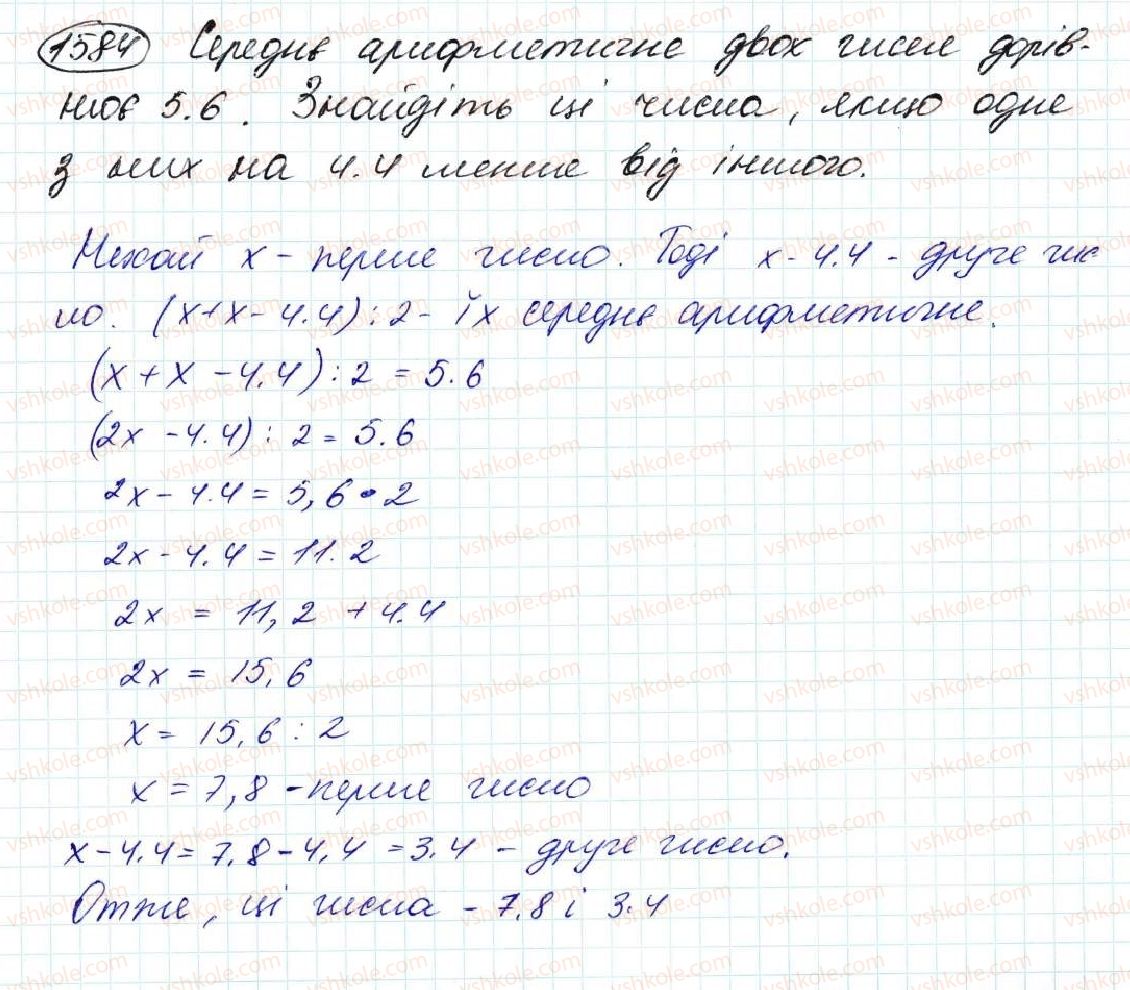 1584 Середнє арифметичне двох чисел дорів-
нює 5.6. Знайдіть ці числа, якщо одне
з них на 4.4 менше від іншого.
Нехай х - перше число. Тоді х - 4.4 - друге чис
ло. (х+х-4.4):2 - їх середнє арифметичне.
(х + х - 4.4) : 2 = 5.6
(2х - 4.4) : 2 = 5.6
2х - 4.4 = 5,6 • 2
2х - 4.4 = 11.2
2х = 11,2 + 4.4
2х = 15,6
х = 15,6 : 2
х = 7,8 - перше число
х - 4.4 = 7,8 - 4,4 = 3.4 - друге число.
Отже, ці числа - 7.8 і 3.4